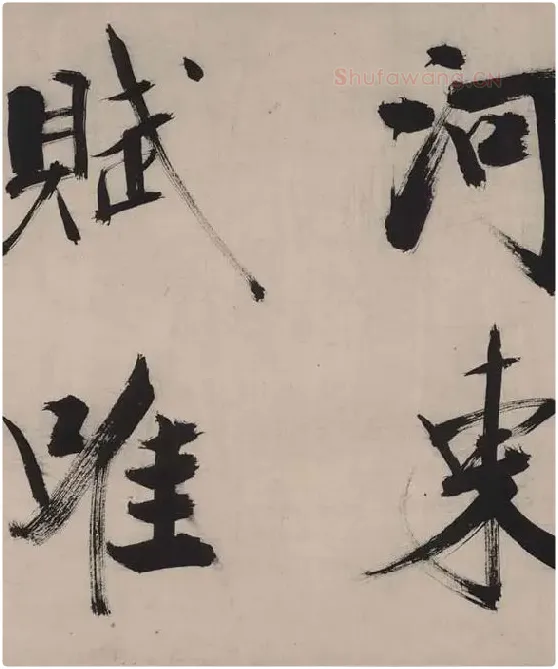 河東
賦唯
Shufawang.CN